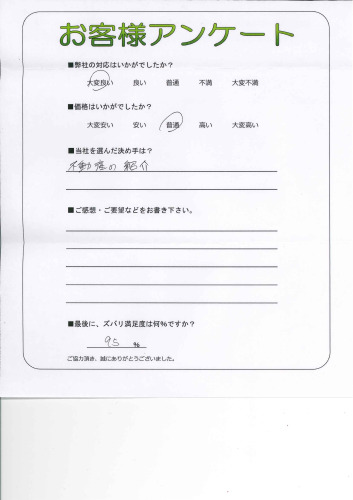 お客様アンケート
■弊社の対応はいかがでしたか?
大変良い 良い 普通 不満 大変不満
■価格はいかがでしたか?
大変安い 安い 普通 高い 大変高い
■当社を選んだ決め手は?
不動産の紹介
■ご感想・ご要望などをお書き下さい。
■最後に、ズバリ満足度は何%ですか?
95 %
ご協力頂き、誠にありがとうございました。